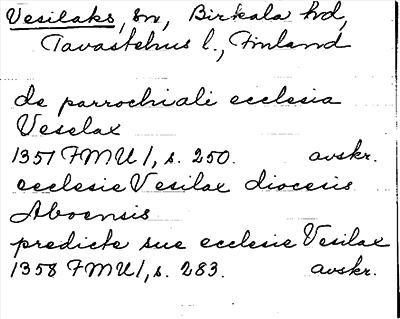 Vesilaks, sn, Birkala hd,
Tavastehus l., Finland
de parrochiali ecclesia
Veselax
1357 FMU 1, s. 250. avskr.
ecclesie Vesilax diocesis
Aboensis
predicte sue ecclesie Vesilax
1358 FMU 1, s. 283. avskr.